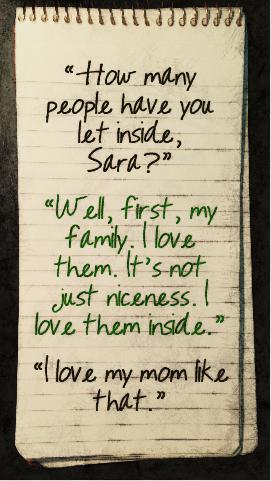 “How many
people have you
let inside,
Sara?”
“Well, first, my
family. I love
them. It’s not
just niceness. I
love them inside.”
“I love my mom like
that.”